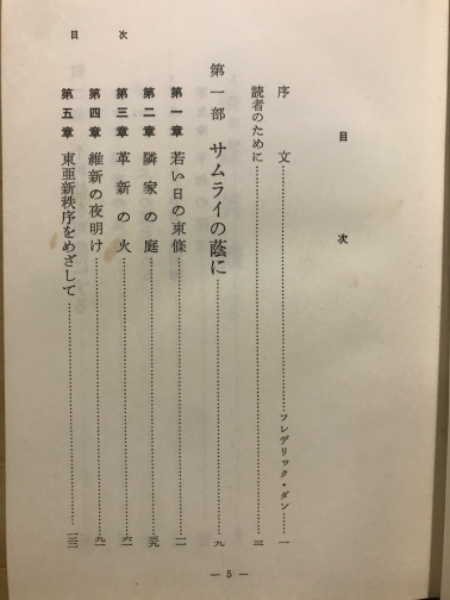 目次
序文……フレデリック・ダン……一
読者のために……三
第一部 サムライの蔭に……九
第一章 若い日の東條……一一
第二章 隣家の庭……三九
第三章 革新の火……六一
第四章 維新の夜明け……九一
第五章 東亜新秩序をめざして……一三
目次
— 5 —